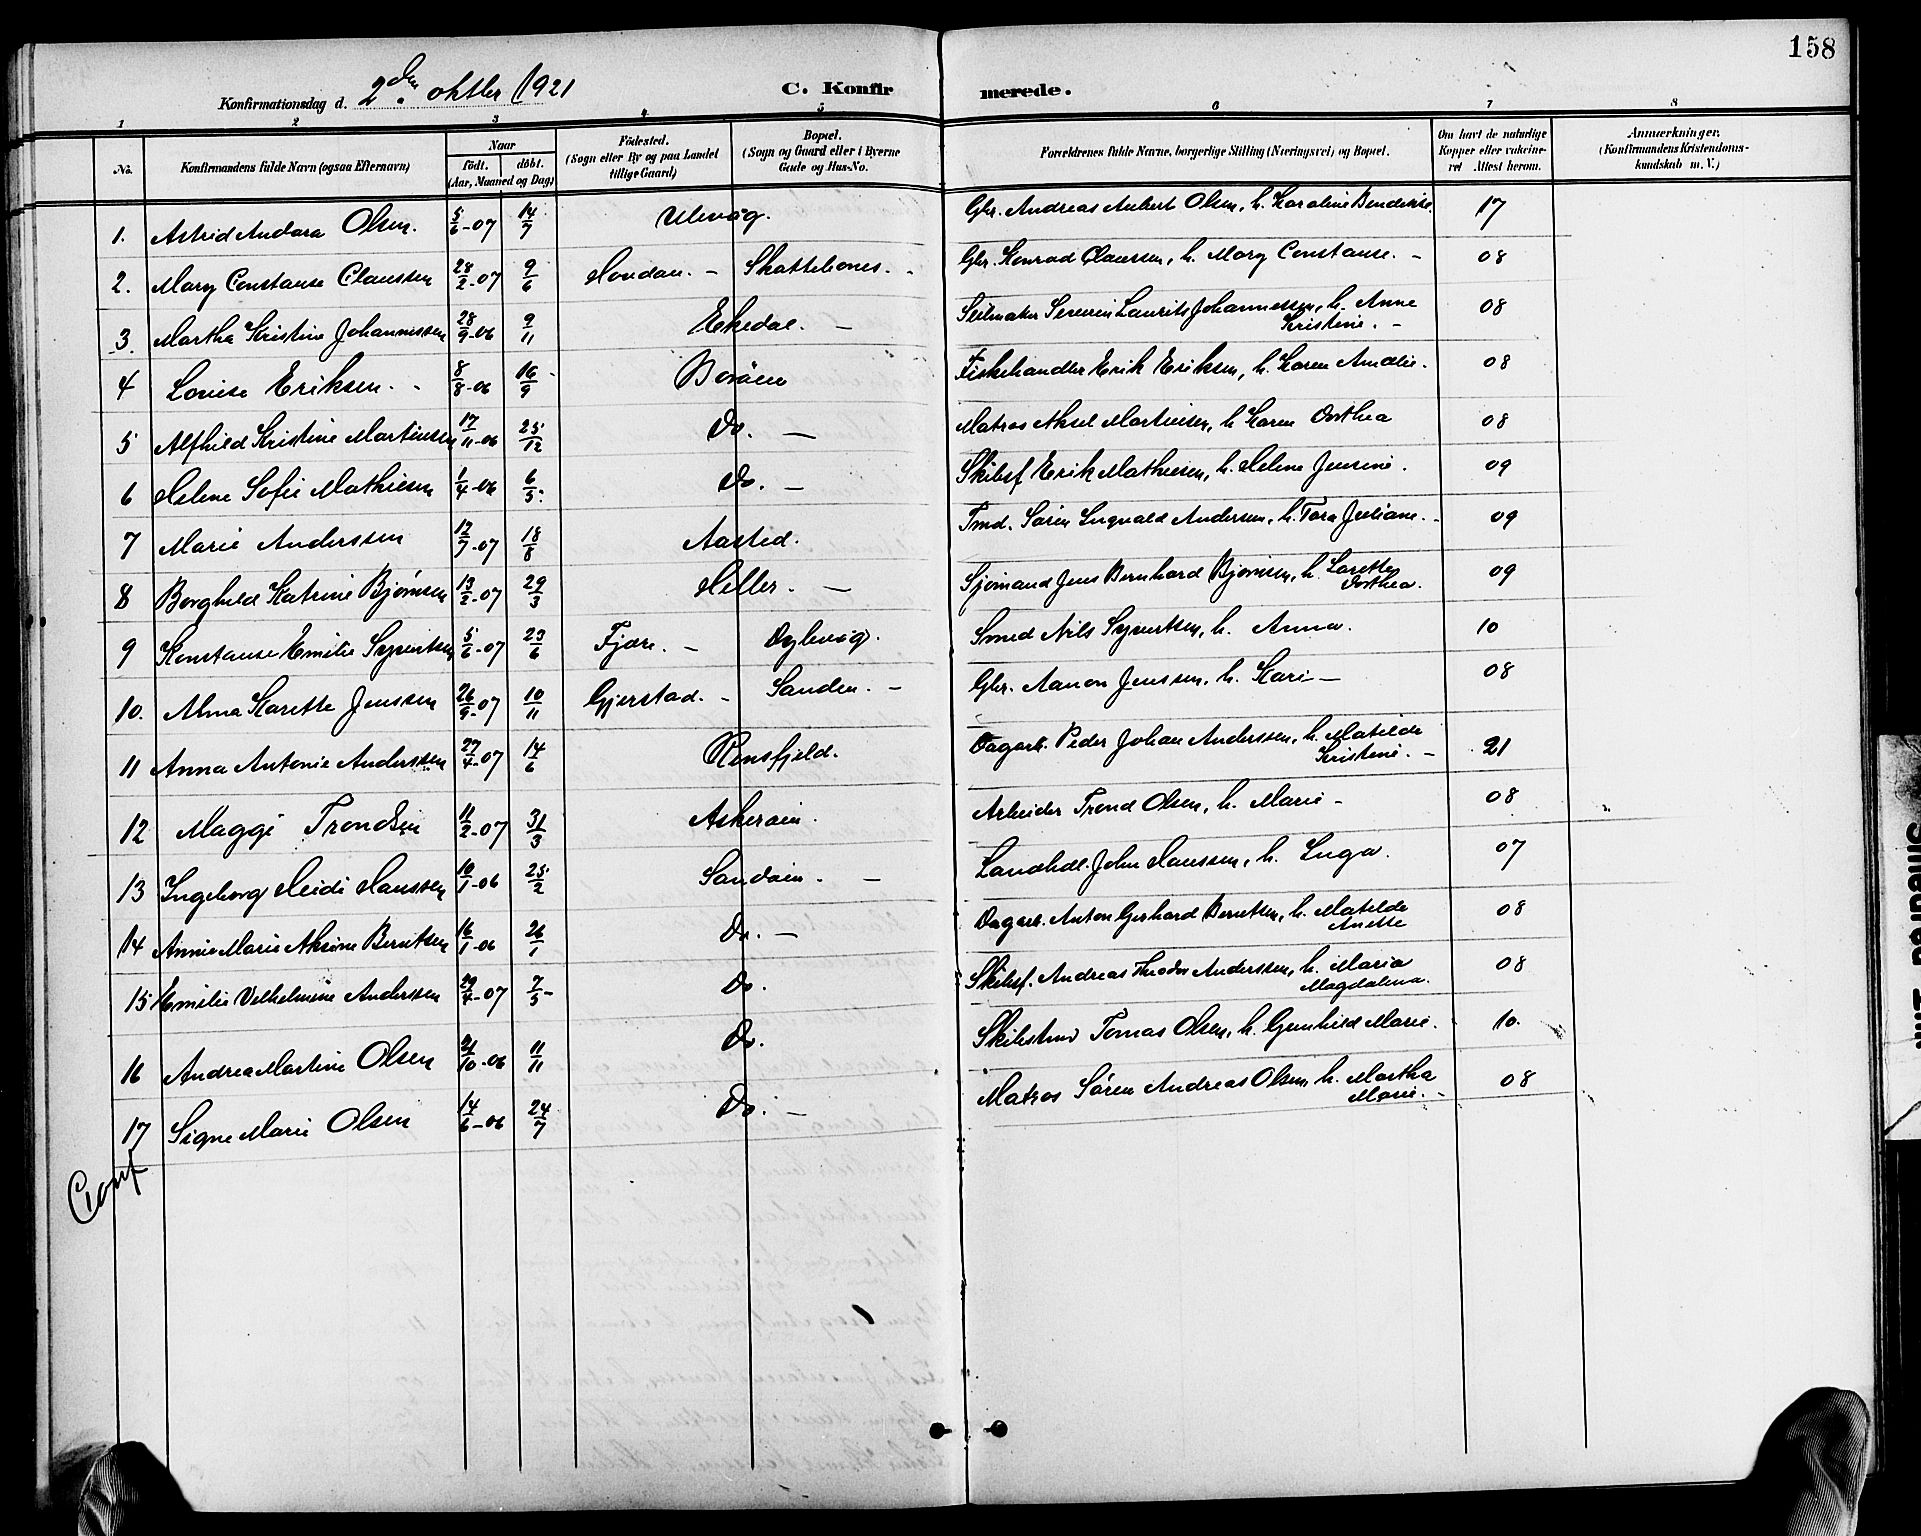 158
Konfirmationsdag d. 2den oktbr 1921
C. Konfirmerede.
1 2 3 4 5 6 7 8
No. Konfirmandens fulde Navn (ogsaa Efternavn) Naar født. døbt. (Aar, Maaned og Dag) Födested. (Sogn eller By og paa Landet tillige Gaard) Bopæl. (Sogn og Gaard eller i Byerne Gade og Hus-No. Forældrenes fulde Navne, borgerlige Stilling (Næringsvei) og Bopæl. Om havt de naturlige Kopper eller vakcineret Attest herom. Anmærkninger. (Konfirmandens Kristendomskundskab m. V.)
1. Astrid Andora Olsen. 5/6-07 14/7 Ulevåg. Gbr. Andreas Aubert Olsen, h. Karoline Bendikte. 17
2. Mary Constanse Claussen 28/2-07 9/6 - Skattebones. - Gbr. Konrad Claussen, h. Mary Constanse. - 08
3. Martha Kristine Johannessen 28/9-06 9/11 Ekedal. - Seilmaker Severin Laurits Johannessen, h. Anne Kristine. - 08
4 Louise Eriksen. - 8/8-06 16/9 Borøen Fiskehandler Erik Eriksen, h. Karen Amalie. 08
5 Alfhild Kristine Martinsen 17/11-06 25/12 Do. - Matros Aksel Martinsen, h. Karen Dorthea 08
6 Helene Sofie Mathiesen 1/4-06 6/5. Do. - Skibsf Erik Mathiesen, h. Helene Jensine. 09
7 Marie Anderssen 12/7-07 18/8 Aasted. Tmd. Søren Ingvald Andersen, h. Tora Juliane. - 09
8 Borghild Katrine Bjørnsen 13/2-07 29/3 Heller. - Sjømand Jens Bernhard Bjørnsen, h. Lorette Dorthea. 09
9 Konstanse Emilie Syvertsen 5/6-07 23/6 Fjære. - Dyb­våg. Smed Nils Syvertsen, h. Anna. 10
10. Alma Karette Jenssen 26/9-07 10/11 Gjerstad. - Sanden. - Gbr. Aanon Jenssen, h. Kari - 08
11 Anna Antonie Anderssen 27/4-07 14/6 Rensfjeld. Dagarb. Peder Johan Anderssen, h. Matilde Kristine. - 21
12 Maggi Trondsen 11/2-07 31/3 Askerøien. Arbeider Trond Olsen, h. Marie - 08
13 Ingeborg Heidi Hanssen 10/1-06 25/2 Sandøien. - Landhdl. John Hanssen, h. Inga. 07
14 Annie Marie Aksine Berntsen 16/1-06 26/1 Do. - Dagarb. Anton Gerhard Berntsen, h. Matilde Anette 08
15 Emilie Vilhelmine Anderssen 29/4-07 7/5- Do. Skibsf. Andreas Theodor Anderssen, h. Maria Magdalena. 08
16 Andrea Martine Olsen 21/10-06 11/11 Do. Skibstmd Tomas Olsen, h. Gunhild Marie. 10.
17 Signe Marie Olsen 14/6-06 24/7 Do. - Matros Søren Andreas Olsen, h. Martha Marie. - 08
Conf